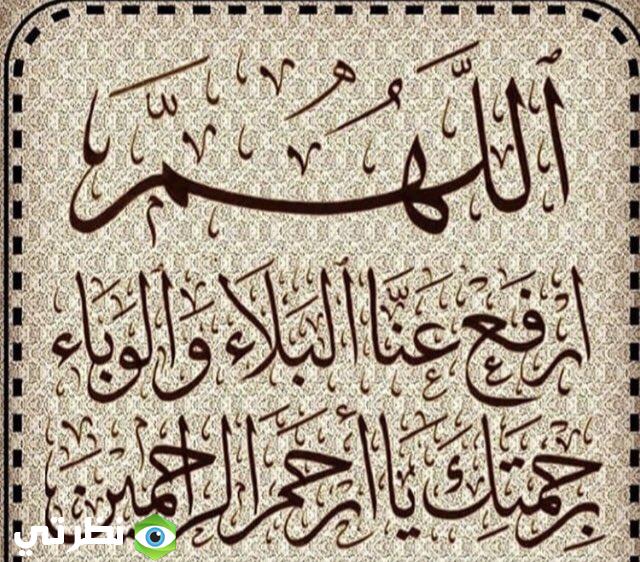 اَللَّهُمَّ
ارفَع عَنَّا البَلَاءَ وَالوَبَاء
بِرَحمَتِكَ يَا أَرحَمَ الرَّاحِمِين
نظرتي